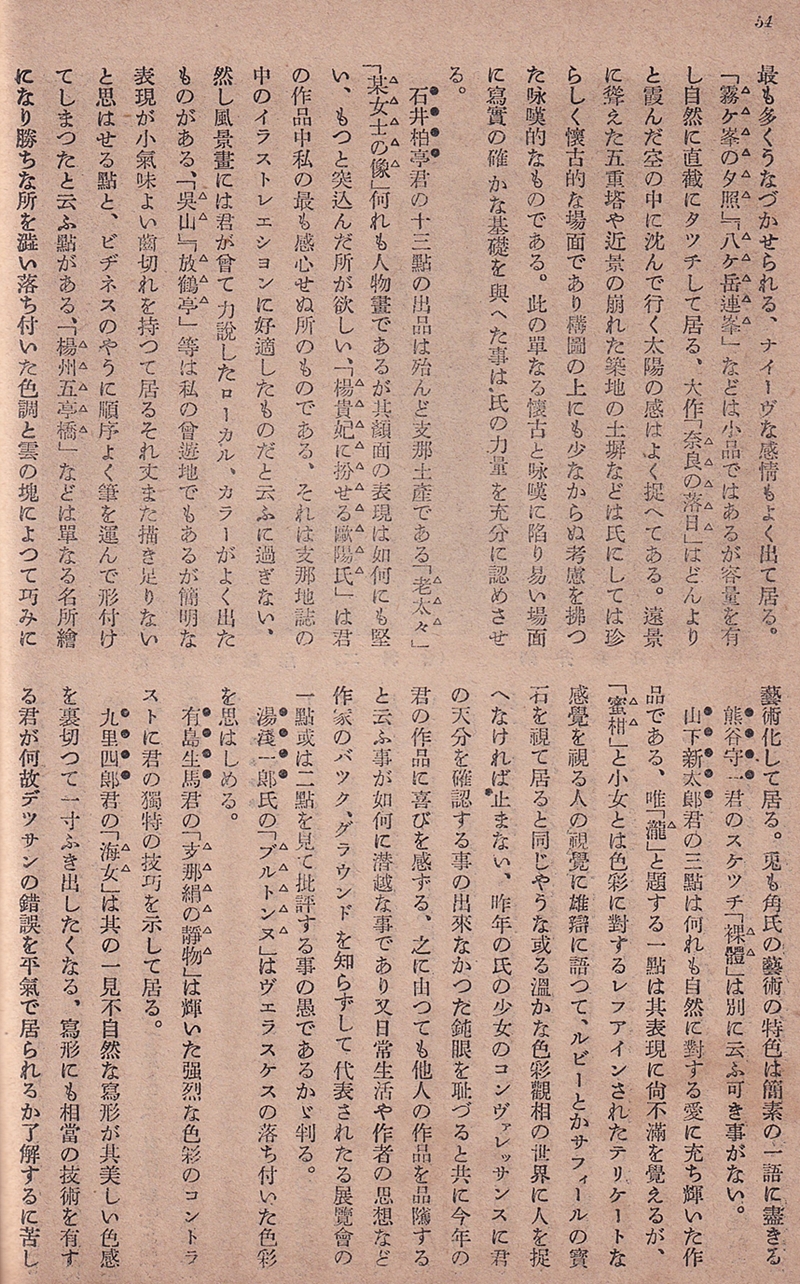 54
最も多くうなづかせられる、ナイーヴな感情もよく出て居る。
「霧ケ峯の夕照」「八ケ岳連峯」などは小品ではあるが容量を有
し自然に直截にタツチして居る、大作「奈良の落日」はどんより
と霞んだ空の中に沈んで行く太陽の感はよく捉へてある。遠景
に聳えた五重塔や近景の崩れた築地の土塀などは氏にしては珍
らしく懐古的な場面であり構圖の上にも少なからぬ考慮を拂つ
た咏嘆的なものである。此の單なる懐古と咏嘆に陷り易い場面
に寫實の確かな基礎を與へた事は氏の力量を充分に認めさせ
る。
石井柏亭君の十三點の出品は殆んど支那土產である「老太々」
「某女士の像」何れも人物畫であるが其顏面の表現は如何にも堅
い、もつと突込んだ所が欲しい、「楊貴妃に扮せる歐陽氏」は君
の作品中私の最も感心せぬ所のものである、それは支那地誌の
中のイラストレエシヨンに好適したものだと云ふに過ぎない、
然し風景畫には君が曾て力說したローカル、カラーがよく出た
ものがある、「吳山」「放鶴亭」等は私の曾遊地でもあるが簡明な
表現が小氣味よい齒切れを持つて居るそれ丈また描き足りない
と思はせる點と、ビヂネスのやうに順序よく筆を運んで形付け
てしまつたと云ふ點がある、「楊州五亭橋」などは單なる名所繪
になり勝ちな所を澁い落ち付いた色調と雲の塊によつて巧みに
藝術化して居る。兎も角氏の藝術の特色は簡素の一語に盡きる
熊谷守一君のスケツチ「裸體」は別に云ふ可き事がない。
山下新太郎君の三點は何れも自然に對する愛に充ち輝いた作
品である、唯「瀧」と題する一點は其表現に尙不滿を覺えるが、
「蜜柑」と小女とは色彩に對するレフアインされたデリケートな
感覺を視る人の視覺に雄辯に語つて、ルビーとかサフィールの寶
石を視て居ると同じやうな或る溫かな色彩觀相の世界に人を捉
へなければ止まない、昨年の氏の少女のコンヴァレッサンスに君
の天分を確認する事の出來なかつた鈍眼を耻づると共に今年の
君の作品に喜びを感ずる、之に由つても他人の作品を品隲する
と云ふ事が如何に潜越な事であり又日常生活や作者の思想など
作家のバツク、グラウンドを知らずして代表されたる展覽會の
一點或は二點を見て批評する事の愚であるかゞ判る。
湯淺一郎氏の「ブルトンヌ」はヴェラスケスの落ち付いた色彩
を思はしめる。
有島生馬君の「支那絹の靜物」は輝いた强烈な色彩のコントラ
ストに君の獨特の技巧を示して居る。
九里四郎君の「海女」は其の一見不自然な寫形が其美しい色感
を裏切つて一寸ふき出したくなる、寫形にも相當の技術を有す
る君が何故デツサンの錯誤を平氣で居られるか了解するに苦し